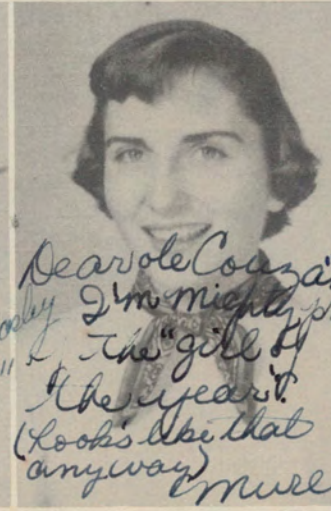 Dear ole Couza'
I'm mighty
"The "girl of
the year".
(Looks like that
anyway)